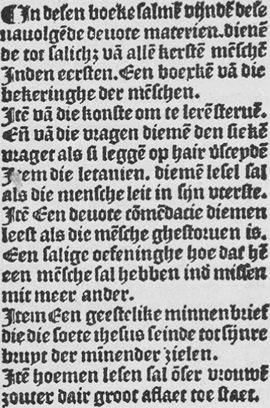 ¶In desen boeke salmē vijndē dese
nauolgēde deuote materien. dienē
de tot salichz vā allē kerstē mēschē
Inden eersten. Een boexkē vā die
bekeringhe der mēschen.
Itē vā die konste om te lerē steruē.
Eñ vā die vragen diemē den siekē
vraget als si leggē op hair vsceydē
Item die letanien. diemē lesel sal
als die mensche leit in sijn vterste.
Itē Een deuote cōmēdacie diemen
leest als die mēsche ghestoruen is.
Een salige oefeninghe hoe dat hē
een mēsche sal hebben ind missen
mit meer ander.
Item Een geestelike minnenbrief
die die soete ihesus seinde tot sijnre
bruyt der minender zielen.
Itē hoemen lesen sal ōser vrouwē
souter dair groot aflaet toe staet.